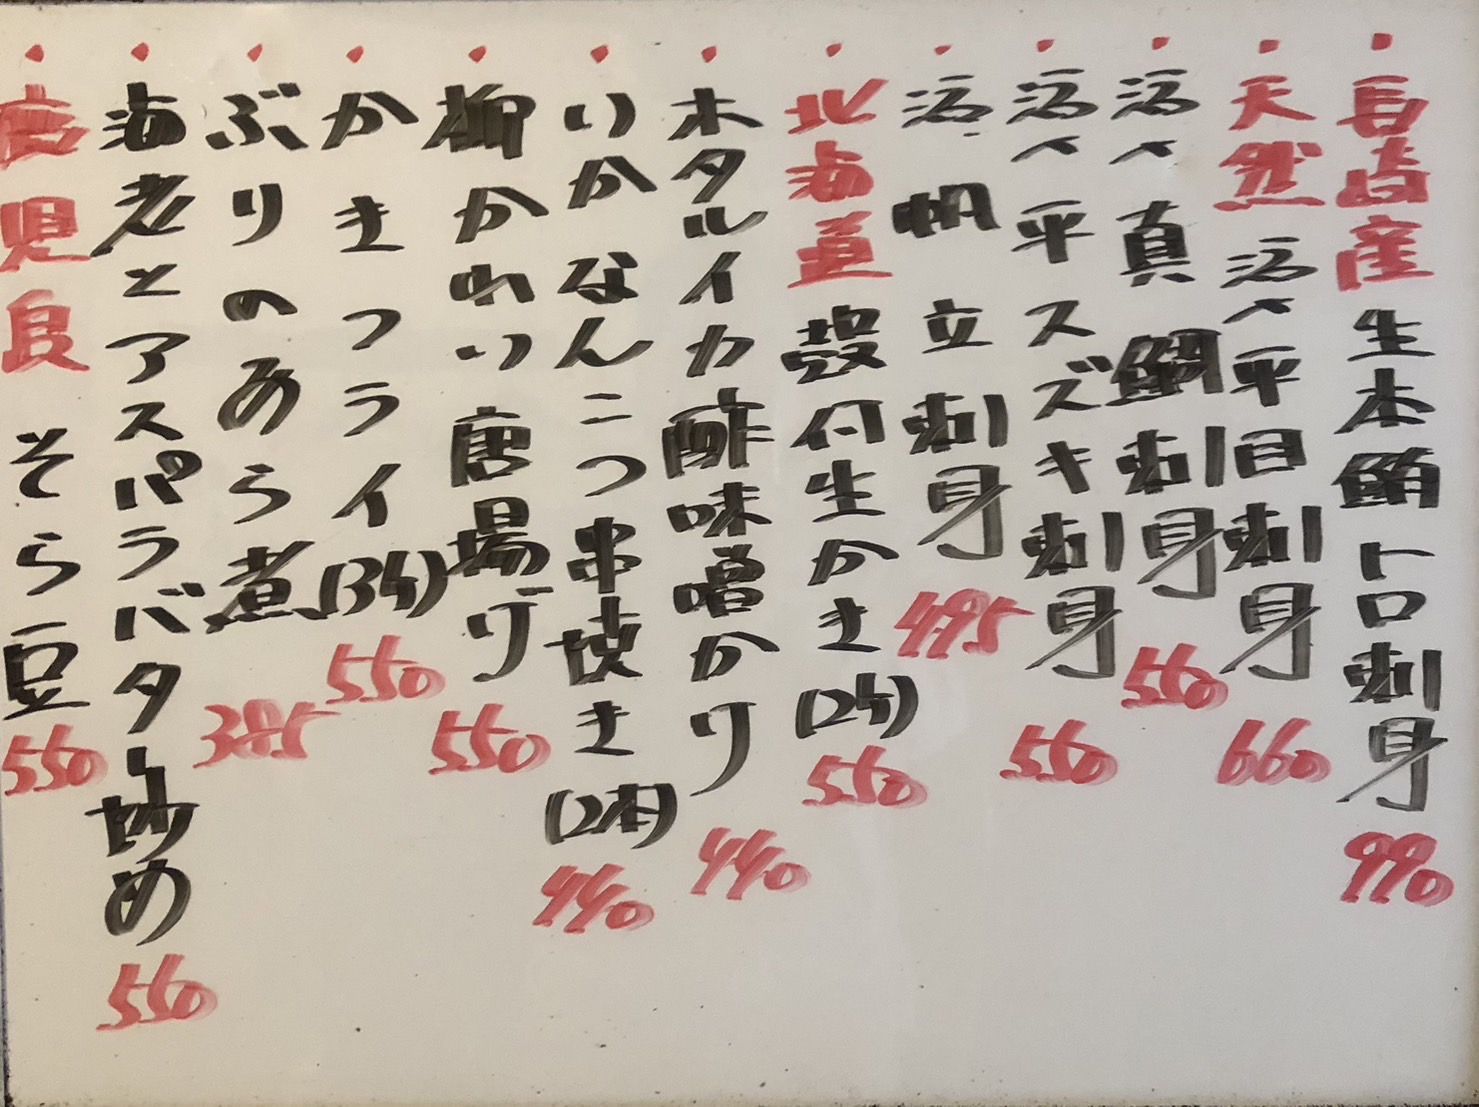 ・長崎産 生本鮪トロ刺身 990
・天然 活〆平目刺身 660
・活〆真鯛刺身 550
・活〆平スズキ刺身 550
・活帆立刺身 495
・北海道 殻付生かき(2ケ) 550
・ホタルイカ酢味噌かけ 440
・いかなんこつ串焼き(2本) 440
・柳かれい唐揚げ 550
・かきフライ(3ケ) 550
・ぶりのあら煮 385
・海老とアスパラバター炒め 550
・鹿児島 そら豆 550